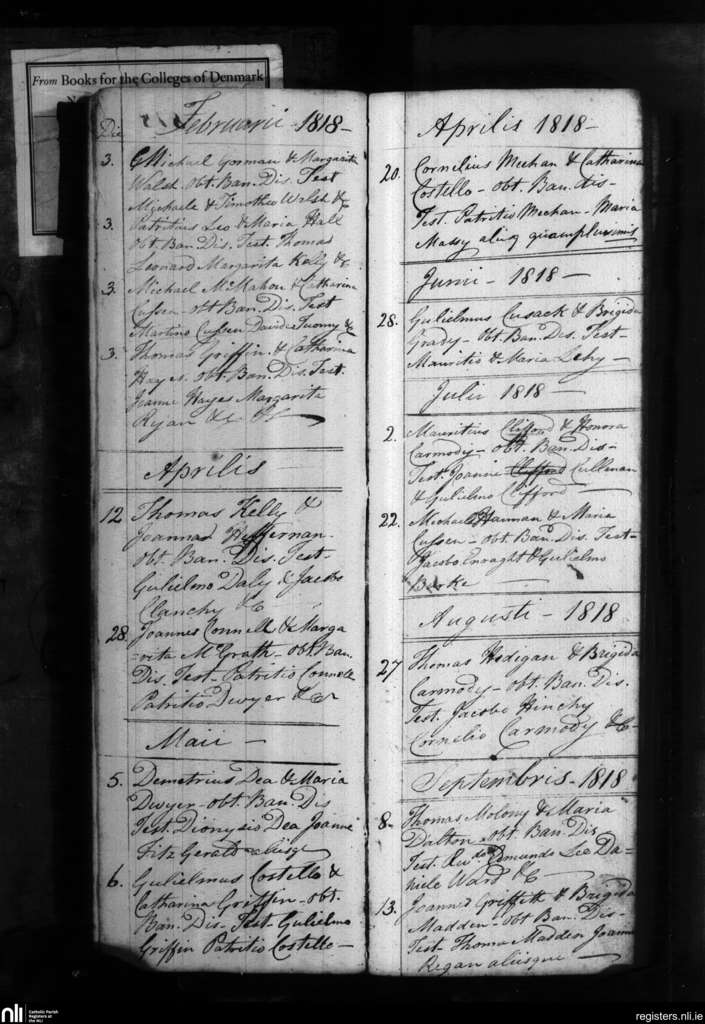 From Books for the Colleges of Denmark
Februarii - 1818 -
Die
3. Michael Gorman & Margarita
Walsh obt. Ban. Dis. Test
Michaele & Timotheo Walsh &c
3. Patritius Leo & Maria Hall
obt Ban Dis. Test. Thomas
Leonard Margarita Kelly &c
3. Michael McMahon & Catharina
Cussen - obt Ban. Dis. Test
Martino Cussen Davide Tuomy &c
3. Thomas Griffin & Catharina
Hayes. obt. Ban. Dis. Test.
Joanne Hayes Margarita
Ryan &c &c
Aprilis
12 Thomas Kelly &
Joanna Heffernan.
obt. Ban. Dis. Test
Gulielmo Daly & Jacobo
Clanchy &c
28. Joannes Connell & Marga
=rita McGrath - obt Ban.
Dis. Test - Patritio Connell
Patritio Dwyer &c
Maii -
5. Demetrius Dea & Maria
Dwyer - obt. Ban. Dis
Test. Dionysio Dea Joanne
FitzGerald aliisqe
6. Gulielmus Costello &
Catharina Griffin - obt.
Ban. Dis. Test - Gulielmo
Griffin Patritio Costello -
Aprilis 1818 -
20. Cornelius Mechan & Catharina
Costello - obt. Ban. dis -
Test. Patritio Mechan - Maria
Massy aliisq quamplurimis
Junii - 1818 -
28. Gulielmus Cusack & Brigida
Grady - obt. Ban. Dis. Test -
Mauritio & Maria Lehy -
Julii 1818 -
2. Mauritius Clifford & Honora
Carmody - obt. Ban. Dis -
Test. Joanne Clifford Cullenan
& Gulielmo Clifford -
22. Michael Hannan & Maria
Cussen - obt. Ban. Dis. Test -
Jacobo Enraght & Gulielmo
Burke -
Augusti - 1818
27 Thomas Hedigan & Brigida
Carmody - obt. Ban. Dis.
Test. Jacobo Hinchy
Cornelio Carmody &c -
Septembris - 1818
8. Thomas Molony & Maria
Dalton - obt. Ban. Dis
Test. Rudo Edmundo Lee Da=
niele Ward &c -
13. Joannes Griffith & Brigida
Madden - obt Ban. Dis -
Test Thoma Madden Joanne
Regan aliisque -
nli
Catholic Parish
Registers at
the NLI
registers.nli.ie